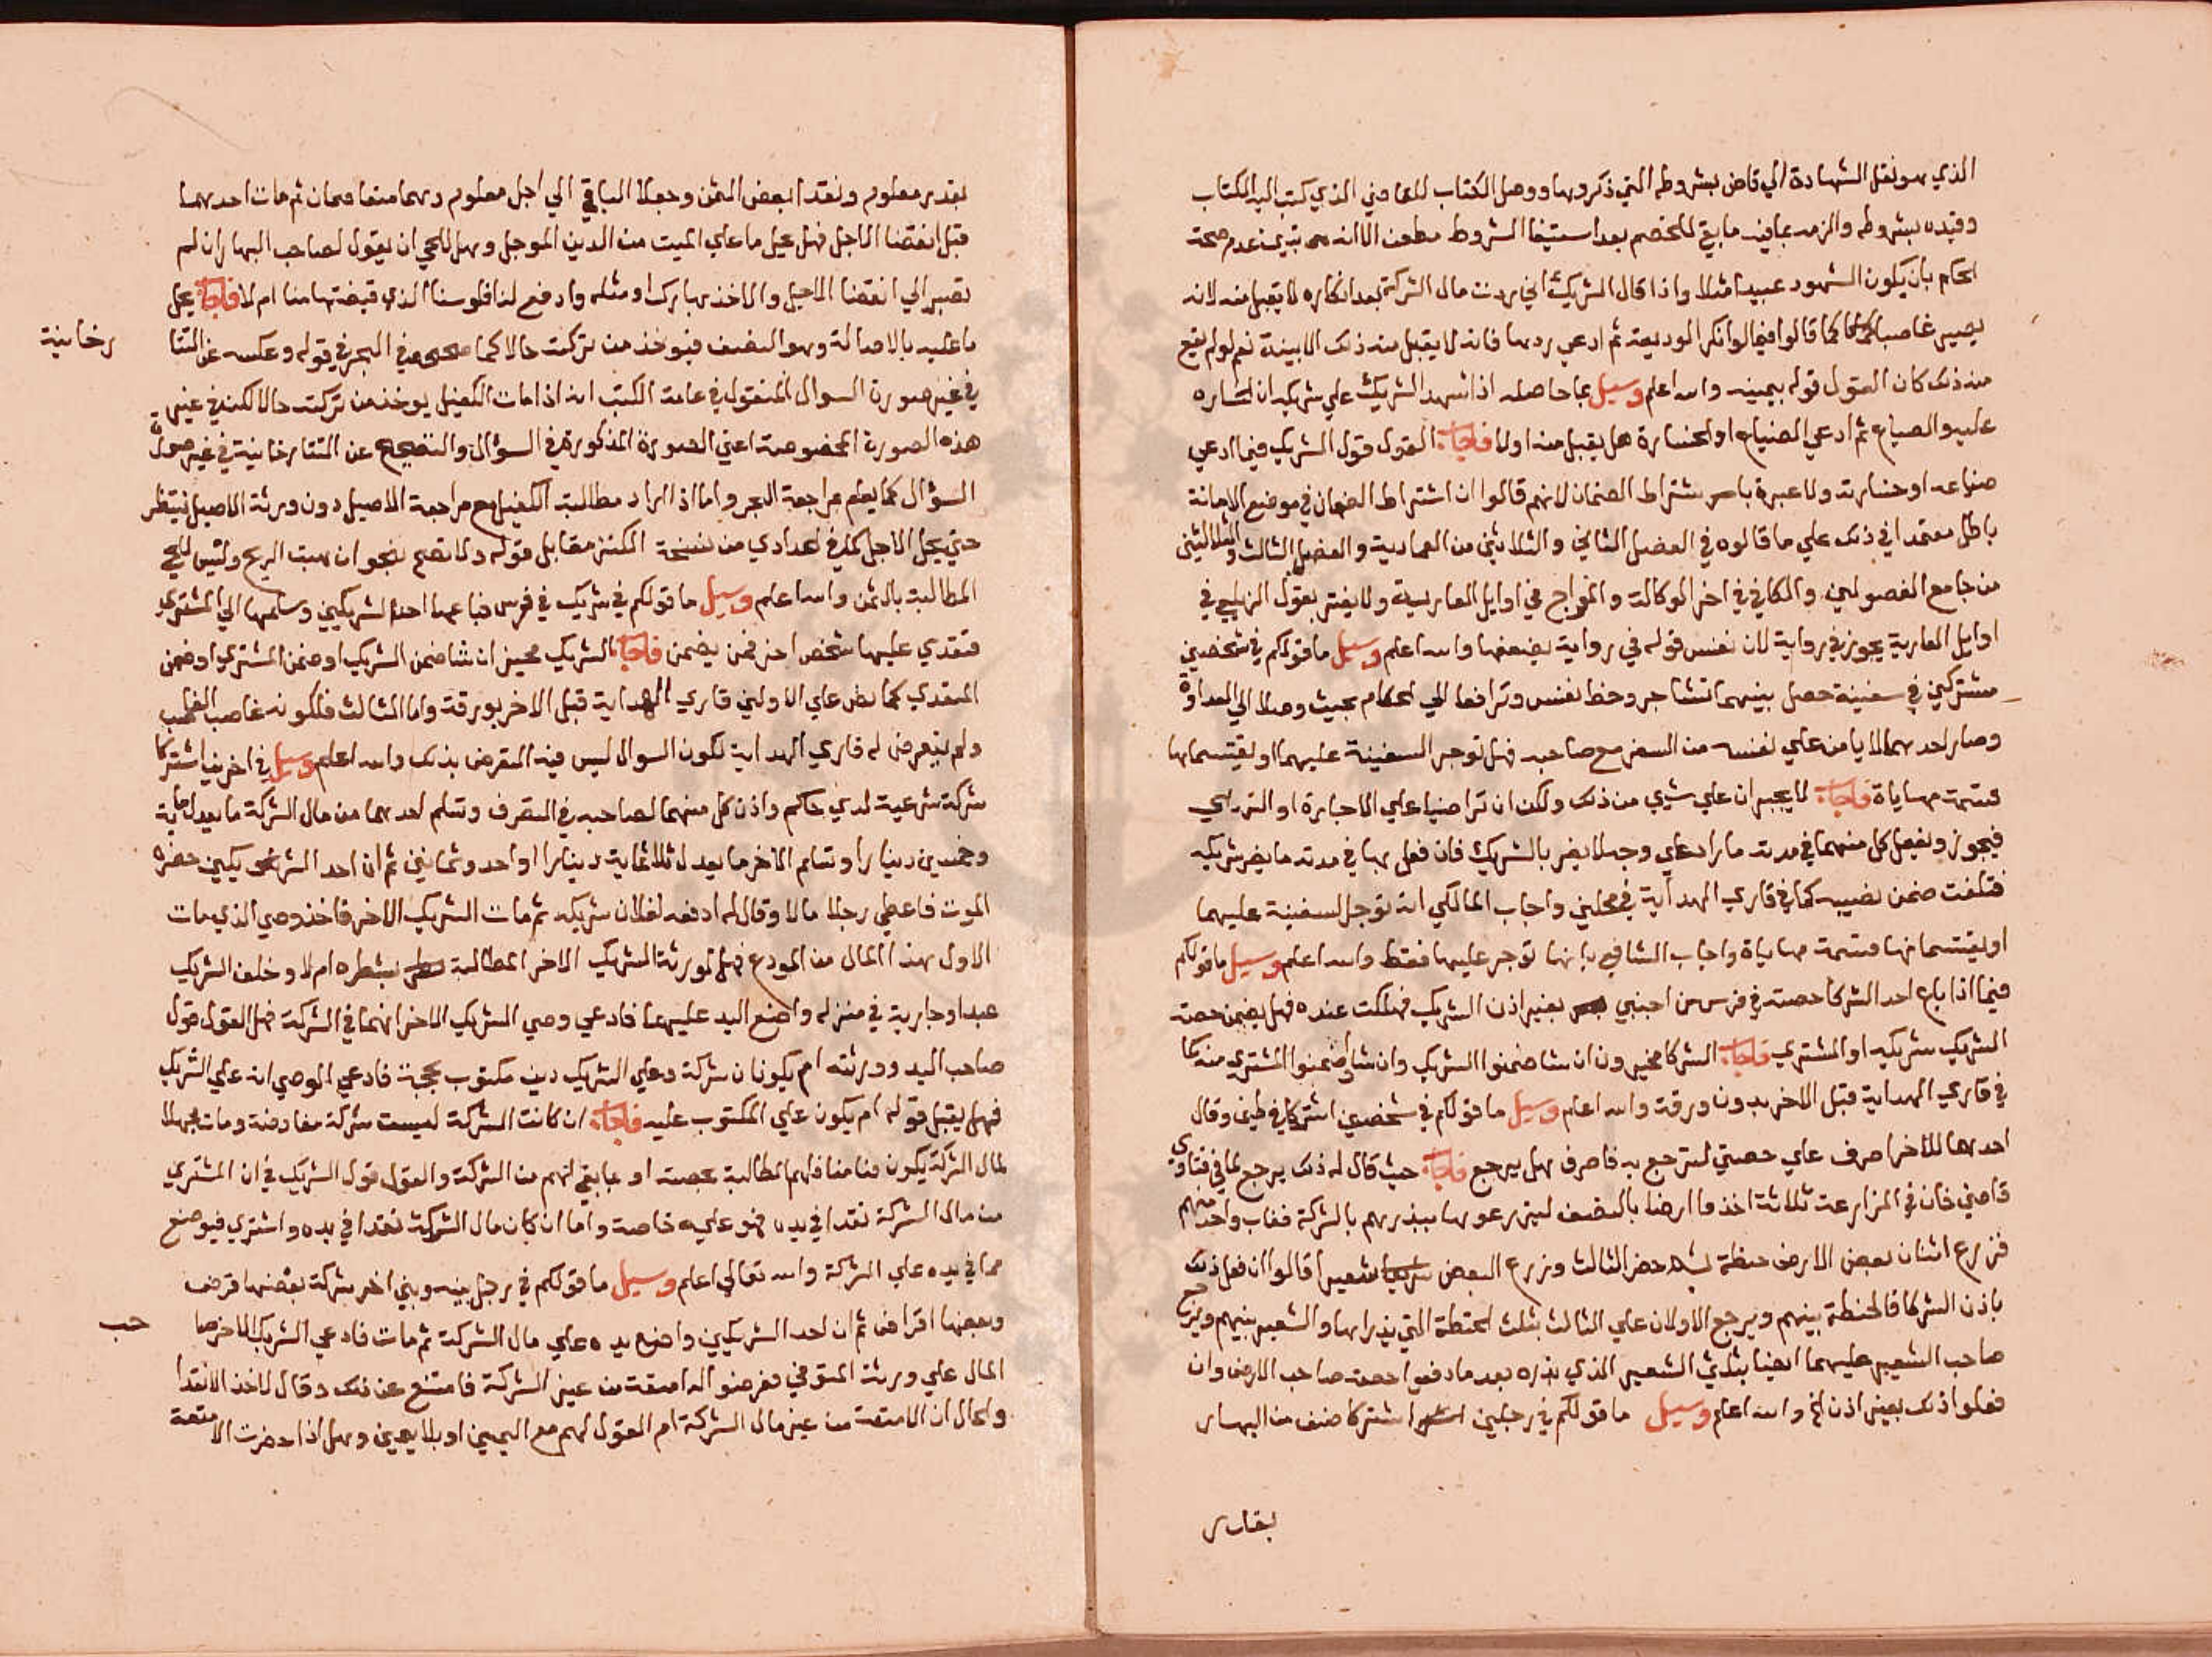 الذي هو نقل الشهادة الي قاض بشروطه التي ذكروها ووصل الكتاب للقاضي الذي كتب اليه الكتاب
وقيده بشروطه والزمه بما فيه ما بقي للخصم بعد استيفا الشروط مطعن الا انه يثبت عدم صحة
الحكم بان يكون الشهود عبيدا مثلا واذا قال الشريك اني رددت مال الشركة بعد انكاره لا يقبل منه لانه
يصير غاصبا كما قالوا فيما لو انكر الوديعة ثم ادعي ردها فانه لا يقبل منه ذلك الا ببينة نعم لو لم يقع
منه ذلك كان القول قوله بيمينه والله اعلم وسيل بما حاصله اذا اشهد الشريك علي شريكه ان الخساره
عليه والضياع ثم ادعي الضياع او الخسارة هل يقبل منه او لا فاجاب القول قول الشريك فيما ادعي
ضياعه او خسارته ولا عبرة باشتراط الضمان لانهم قالوا ان اشتراط الضمان في موضع الامانة
باطل معتمدا في ذلك علي ما قالوه في الفصل الثاني والثلاثين من العمادية والفصل الثالث والثلاثين
من جامع الفصولين والكافي في اخر الوكالة والمواج في اوايل العارية ولا يغتر بقول الزيلعي في
اوايل العارية يجوز في رواية لان نفس قوله في رواية يضعفها والله اعلم وسيل ما قولكم في شخصين
مشتركين في سفينة حصل بينهما تشاجر وحظ نفس وترافعا الي الحكام بحيث وصلا الي العداوة
وصار احدهما لا يامن علي نفسه من السفر مع صاحبه فهل توجر السفينة عليهما او يقتسمانها
قسمة مهاياة فاجاب لا يجبران علي شيء من ذلك ولكن ان تراضيا علي الاجارة او التهايي
فيجوز ويفعل كل منهما في مدته ما اراد علي وجه لا يضر بالشريك فان فعل بها في مدته ما يضر شريكه
فتلفت ضمن نصيبه كما في قاري الهداية في محلين واجاب المالكي انه توجر السفينة عليهما
او يقتسمانها قسمة مهاياة واجاب الشافعي بانها توجر عليهما فقط والله اعلم وسيل ما قولكم
فيما اذا باع احد الشركا حصته في فرس من اجنبي بغير اذن الشريك فهلكت عنده فهل يضمن حصة
الشريك شريكه او المشتري فاجاب الشركا مخيرون ان شا ضمنوا الشريك وان شاو ضمنوا المشتري منه كما
في قاري الهداية قبل الاخر بدون ورقة والله اعلم وسيل ما قولكم في شخصين اشتركا في طين وقال
احدهما للاخر اصرف علي حصتي لترجع به فاصرف هل يرجع فاجاب حيث قال له ذلك يرجع لما في فتاوي
قاضي خان في المزارعة ثلاثة اخذوا ارضا بالنصف ليزرعوها ببذرهم بالشركة فغاب واحد منهم
فزرع اثنان بعض الارض حنطة ثم حضر الثالث وزرع البعض شعيرا قالوا ان فعل ذلك
باذن الشركا فالحنطة بينهم ويرجع الاولان علي الثالث بثلث الحنطة التي بذراها والشعير بينهم ويرجع
صاحب الشعير عليهما ايضا بثلثي الشعير الذي بذره بعد ما دفعوا حصة صاحب الارض وان
فعلوا ذلك بغير اذن الخ والله اعلم وسيل ما قولكم في رجلين اشتركا صنف من البهار
بقدر
بقدر معلوم ونقدا بعض الثمن وجعلا الباقي الي اجل معلوم وهما متضامنان ثم مات احدهما
قبل انقضا الاجل فهل يحل ما علي الميت من الدين الموجل وهل للحي ان يقول لصاحب البهار ان لم
تصبر الي انقضا الاجل والا خذ بهارك او مثله وادفع لنا فلوسنا الذي قبضتها منا ام لا فاجاب يحل
ما عليه بالاصالة وهو النصف فيوخذ من تركته حالا كما صححه في البحر في قوله وعكسه عن التتا
رخانية
في غير صورة السوال المنقول في عامة الكتب انه اذا مات الكفيل يوخذ من تركته حالا لكن في غير
هذه الصورة المخصوصة اعني الصورة المذكورة في السؤال والتصحيح عن التتارخانية في غير صورة
السؤال كما يعلم بمراجعة البحر واما اذا اراد مطالبة الكفيل مع مراجعة الاصيل دون ورثة الاصيل فينتظر
حتي يحل الاجل كما في الحدادي من نسخة الكنز مقابل قوله ولا تصح بنحو ان هبت الريح وليس للحي
المطالبة بالثمن والله اعلم وسيل ما قولكم في شريك في فرس فباعها احد الشريكين وسلمها الي المشتري
فتعدي عليها شخص اخر فمن يضمن فاجاب الشريك مخير ان شا ضمن الشريك او ضمن المشتري او ضمن
المتعدي كما نص علي الاولين قاري الهداية قبل الاخر بورقة واما الثالث فلكونه غاصب الغاصب
ولم يتعرض له قاري الهداية لكون السوال ليس فيه التعرض بذلك والله اعلم وسيل في اخرين اشتركا
شركة شرعية لدي حاكم واذن كل منهما لصاحبه في التصرف وتسلم احدهما من مال الشركة ما يعدل ماية
وخمسين دينارا وتسلم الاخر ما يعدل ثلاثماية دينارا واحد وثمانين ثم ان احد الشريكين حضره
الموت فاعطي رجلا مالا وقال له ادفعه لفلان شريكه ثم مات الشريك الاخر فاخذ وصي الذي مات
الاول هذا المال من المودع فهل لورثة الشريك الاخر المطالبة بشطره ام لا وخلف الشريك
عبدا وجارية في منزله واضع اليد عليهما فادعي وصي الشريك الاخر انهما في الشركة فهل القول قول
صاحب اليد وورثته ام يكونان شركة وعلي الشريك دين مكتوب بحجة فادعي الوصي انه علي الشريك
فهل يقبل قوله ام يكون علي المكتوب عليه فاجاب ان كانت الشركة ليست شركة مفاوضة ومات مجهلا
لمال الشركة يكون ضامنا فلهم المطالبة بحصته او بما بقي لهم من الشركة والقول قول الشريك في ان المشتري
من مال الشركة نقدا في يده فهو عليه خاصة واما ان كان مال الشركة نقدا في يده واشتري فيوضع
مما في يده علي الشركة والله تعالي اعلم وسيل ما قولكم في رجل بينه وبين اخر شركة بعضها قرض
وبعضها اقراض ثم ان احد الشريكين واضع يده علي مال الشركة ثم مات فادعي الشريك الاخر
حب
المال علي ورثة المتوفي فعرضوا له امتعة من عين الشركة فامتنع عن ذلك وقال لا اخذ الا نقدا
والحال ان الامتعة من عين مال الشركة ام القول لهم مع اليمين او بلا يمين وهل اذا حضرت الامتعة